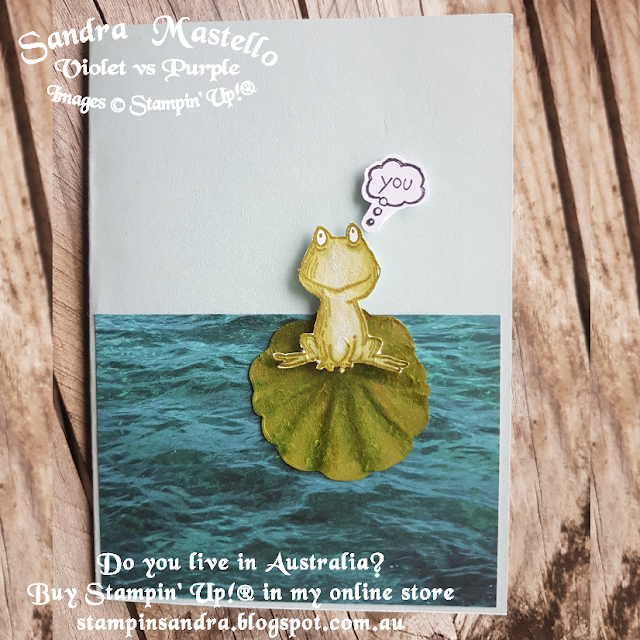 Sandra Mastello
Violet vs Purple
Images © Stampin' Up!®
YOU
Do you live in Australia?
Buy Stampin' Up!® in my online store
stampinsandra.blogspot.com.au